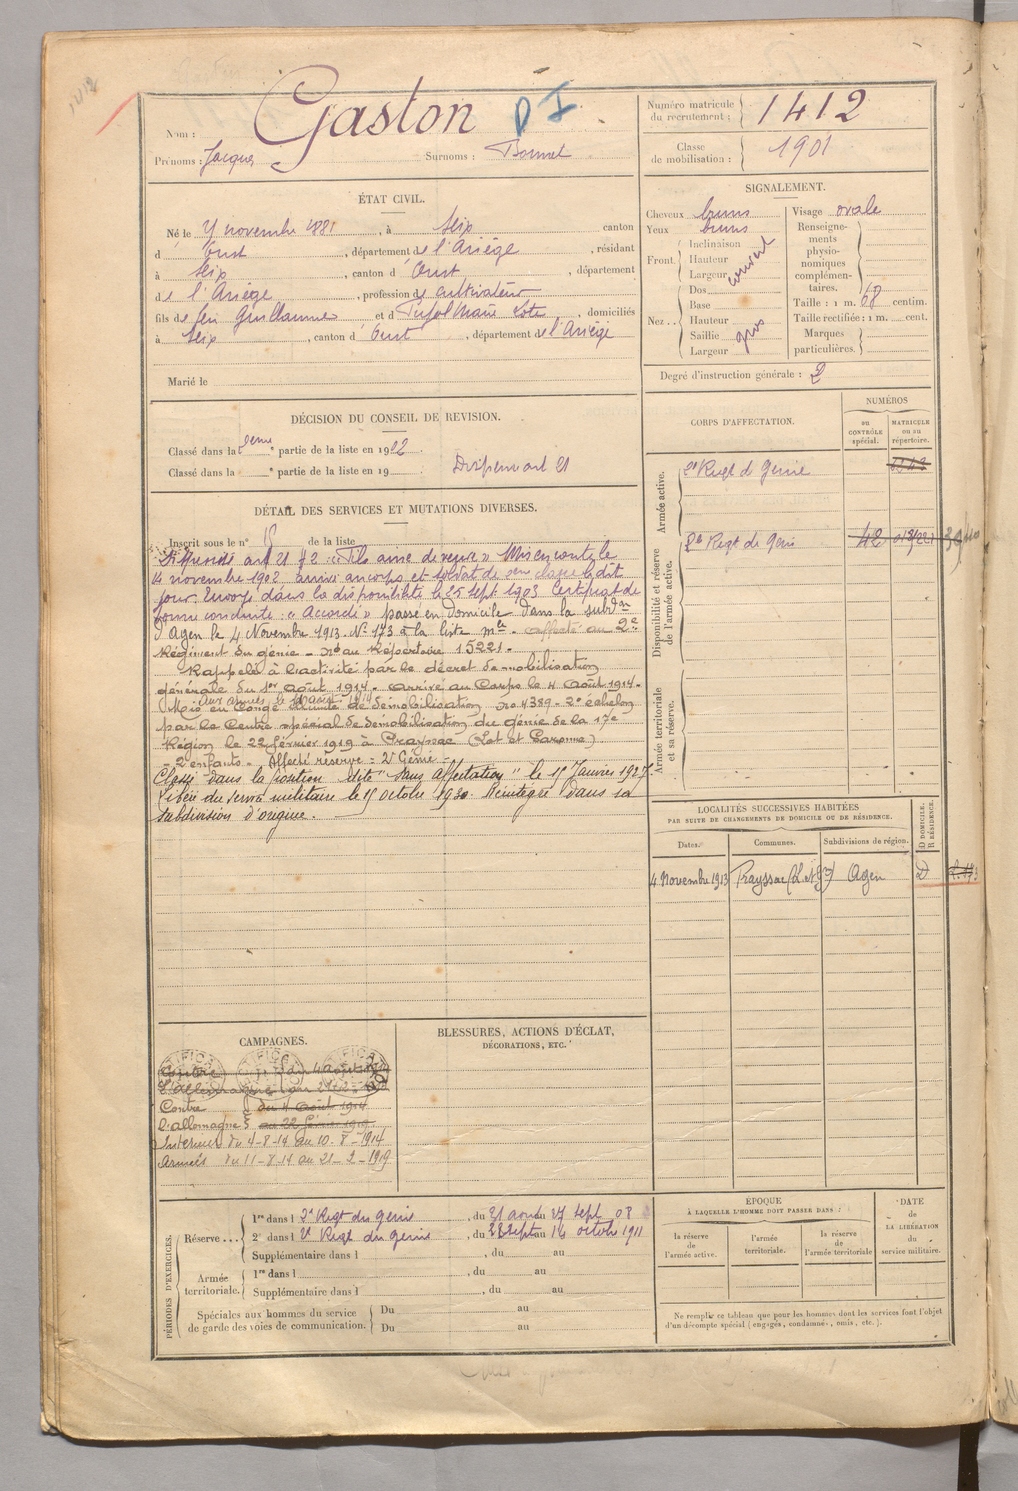 1412
Nom : Gaston D I
Prénoms : Jacques Surnoms : Bonnel
Numéro matricule du recrutement : 1412
Classe de mobilisation : 1901
ÉTAT CIVIL.
Né le 7 novembre 1881, à Seix canton
d'Oust, département de l'Ariège, résidant
à Seix, canton d'Oust, département
de l'Ariège, profession de cultivateur
fils de feu Guillaume et d Pujol Marie, domiciliés
à Seix, canton d'Oust, département de l'Ariège
Marié le
SIGNALEMENT.
Cheveux bruns
Yeux bruns
Front. Inclinaison
Hauteur
Largeur
couvert
Nez. Dos
Base
Hauteur
Saillie
Largeur
gros
Visage ovale
Renseignements physionomiques complémentaires.
Taille : 1 m. 68 centim.
Taille rectifiée : 1 m. cent.
Marques particulières.
Degré d'instruction générale : 2
DÉCISION DU CONSEIL DE REVISION.
Classé dans la 2eme partie de la liste en 1902
Classé dans la e partie de la liste en 19
Dispensé art 21
CORPS D'AFFECTATION.
NUMÉROS
DU CONTRÔLE spécial.
MATRICULE ou au répertoire.
Armée active.
2e Regt de Génie
Disponibilité et réserve de l'armée active.
2e Regt de Génie 42
Armée territoriale et sa réserve.
DÉTAIL DES SERVICES ET MUTATIONS DIVERSES.
Inscrit sous le n° de la liste
Dispensé art 21 § 2 « Fils aîné de veuve » Mis en route le
14 novembre 1902, arrivé au corps et soldat de 2eme classe le dit
jour. Envoyé dans la disponibilité le 25 sept. 1903 Certificat de
bonne conduite : « Accordé » passé en Domicile dans la subdon
d'Agen le 4 Novembre 1913. N° 173 à la liste mle. affecté au 2e
Régiment du génie - no au Répertoire 15221.
Rappelé à l'activité par le décret de mobilisation
générale du 1er août 1914. arrivé au Corps le 4 août 1914.
Aux armées le 11 août 1914
Mis en congé illimité de démobilisation no 4389 - 2e échelon
par le Centre spécial de démobilisation du génie de la 17e
Région le 22 février 1919 à Prayssas (Lot et Garonne)
- 2 enfants - Affecté réserve : 2e Génie -
Classé dans la position dite "sans affectation" le 15 Janvier 1927.
Libéré du service militaire le 15 octobre 1930. Réintégré dans sa
subdivision d'origine.
LOCALITÉS SUCCESSIVES HABITÉES
PAR SUITE DE CHANGEMENTS DE DOMICILE OU DE RÉSIDENCE.
D DOMICILE. R RÉSIDENCE.
Dates. Communes. Subdivisions de région.
4 Novembre 1913 Prayssas (L. et G.) Agen D
CAMPAGNES.
Contre l'Allemagne du 4 août 1914
au 22 février 1919.
Intérieur du 4-8-14 au 10-8-1914
Armées du 11-8-14 au 21-2-1919
BLESSURES, ACTIONS D'ÉCLAT,
DÉCORATIONS, ETC.
PÉRIODES D'EXERCICES.
Réserve... 1re dans l 2e Regt du génie, du 31 août au 27 sept 08
2e dans l 2e Regt du génie, du 23 sept au 14 octobre 1911
Supplémentaire dans l , du au
Armée territoriale. 1re dans l , du au
Supplémentaire dans l , du au
Spéciales aux hommes du service de garde des voies de communication. Du au
Du au
ÉPOQUE
À LAQUELLE L'HOMME DOIT PASSER DANS :
la réserve de l'armée active.
l'armée territoriale.
la réserve de l'armée territoriale
DATE de LA LIBÉRATION du service militaire.
Ne remplir ce tableau que pour les hommes dont les services font l'objet
d'un décompte spécial (engagés, condamnés, omis, etc.).